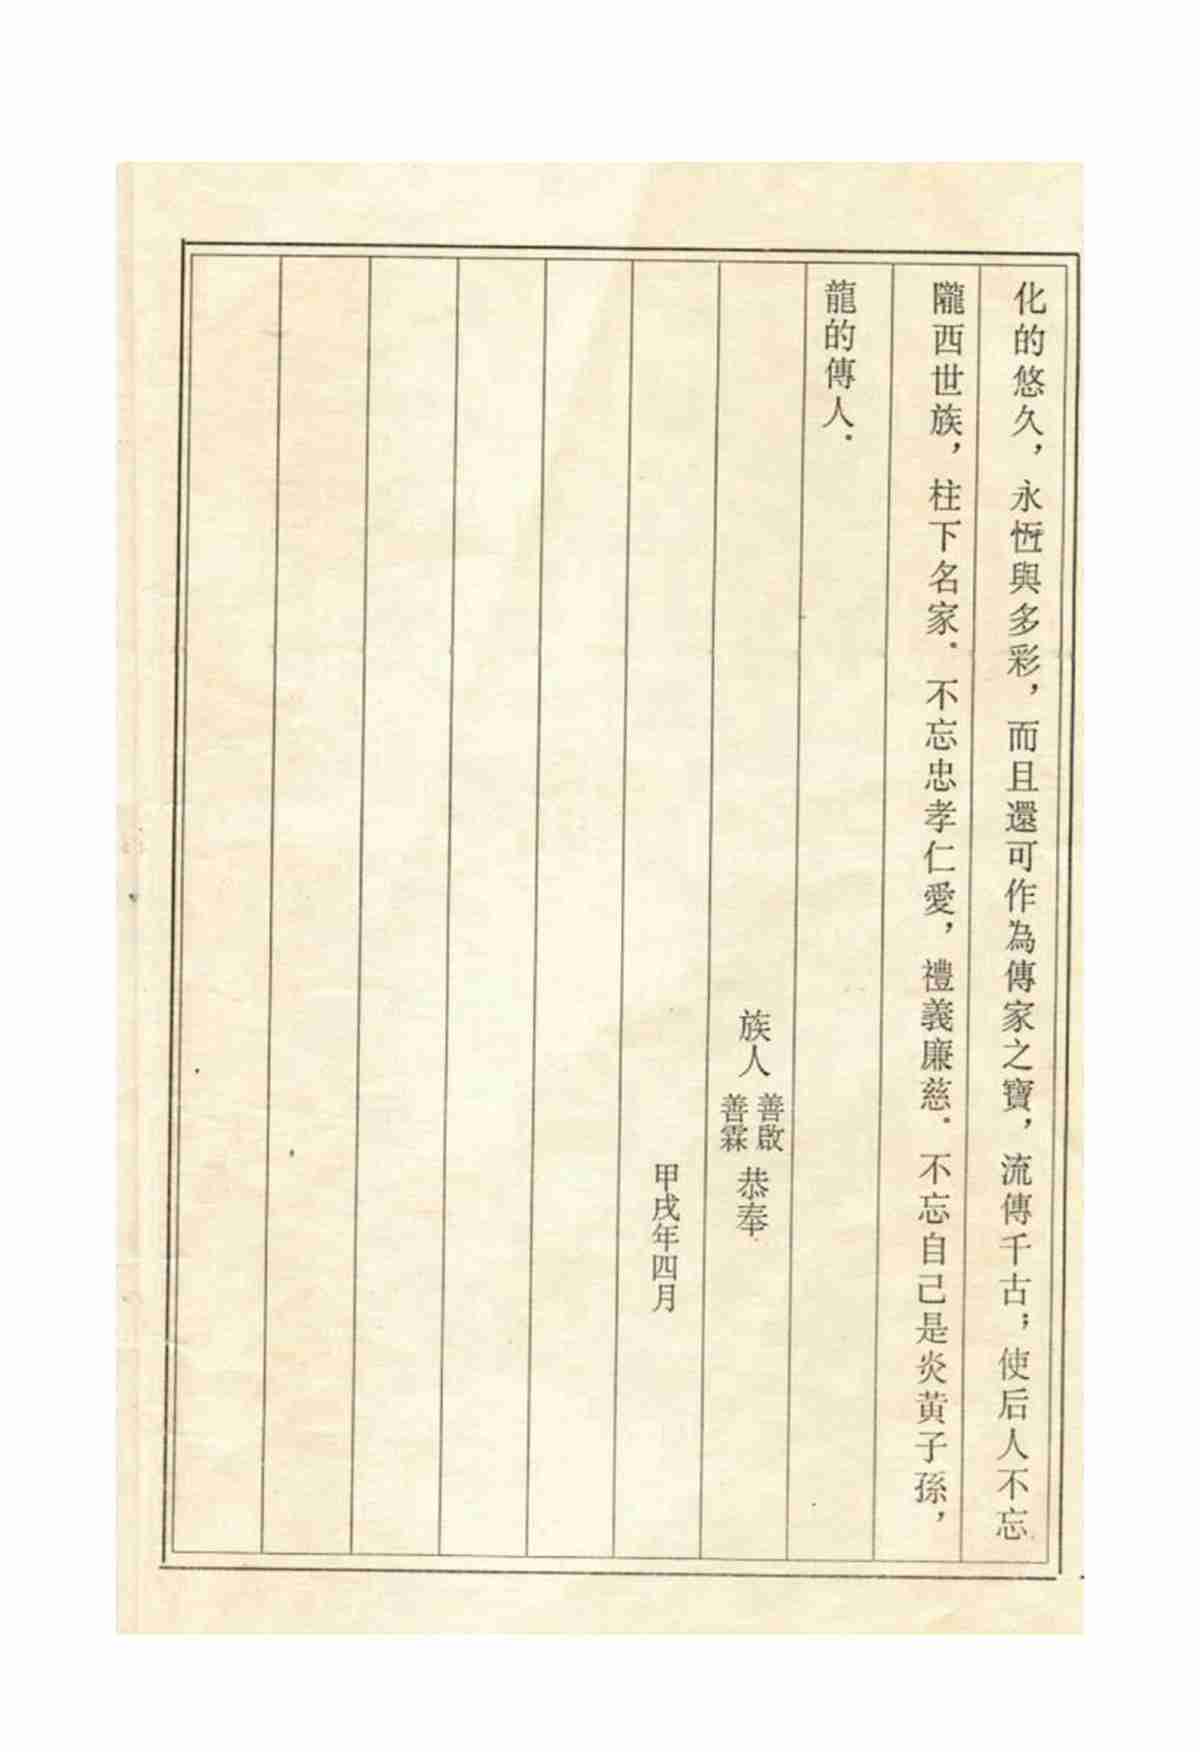 化的悠久，永恆與多彩，而且還可作為傳家之寶，流傳千古；使后人不忘
隴西世族，柱下名家．不忘忠孝仁愛，禮義廉慈．不忘自己是炎黄子孫，
龍的傳人．
族人 善啟 善霖 恭奉
甲戌年四月